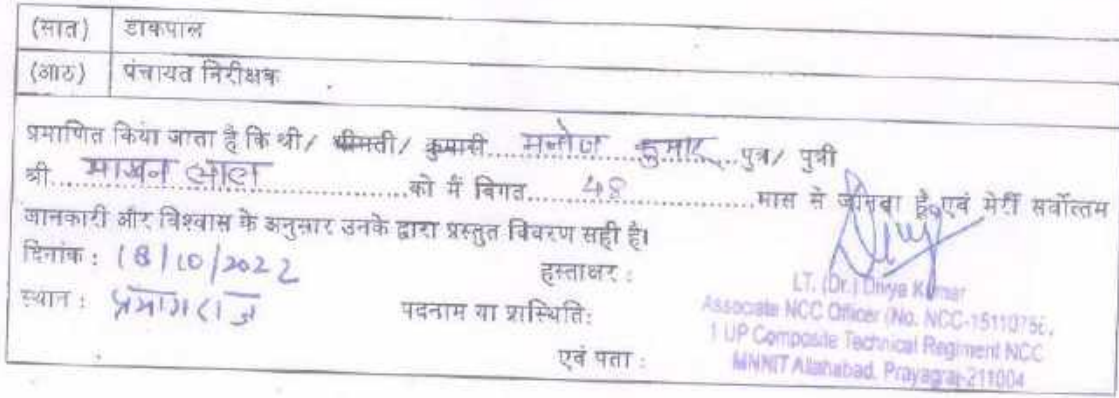 (सात) डाकपाल
(आठ) पंचायत निरीक्षक
प्रमाणित किया जाता है कि श्री/ श्रीमती/ कुमारी... मनोज कुमार ...पुत्र/ पुत्री
श्री... माखन लाल ...को मैं विगत... 48 ...मास से जानता हूँ एवं मेरी सर्वोत्तम
जानकारी और विश्वास के अनुसार उनके द्वारा प्रस्तुत विवरण सही है।
दिनांक : 18/10/2022 हस्ताक्षर :
LT. (Dr.) Divya Kumar
स्थान : प्रयागराज पदनाम या प्रास्थिति: Associate NCC Officer (No. NCC-
1 UP Composite Technical Regiment NCC
एवं पता : MNNIT Allahabad, Prayagraj-211004